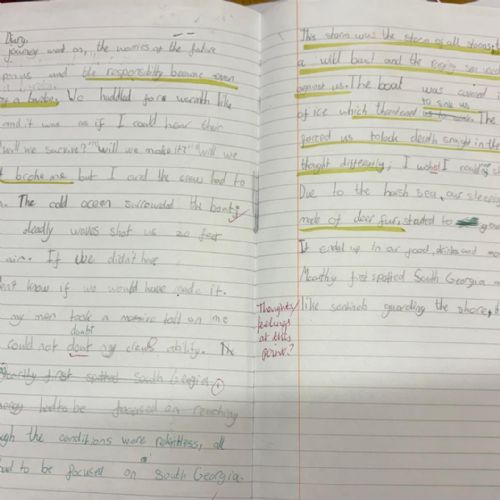 Diary,
journey went on, the worries of the future
and the responsibility became even
a burden. We huddled for warmth like
and it was as if I could hear their
"will we survive?" "Will we make it?" "Will we
broke me but I and the crew had to
The cold ocean surrounded the boat,
deadly waves shot us 20 feet
air. If we didn't have
know if we would have made it.
my men took a massive toll on me
doubt
could not dout my crews ability. The
first spotted South Georgia
had to be focused on reaching
the conditions were relentless, all
had to be focused on South Georgia.
Thoughts/
feelings
at this
point?
This storm was the storm of all storms,
a wild beast and the
against us. The boat was covered
to sink us
of ice which threatened The
forced us to look death straight in the
thought differently, I
Due to the harsh sea, our sleeping
made of deer fur, started to
It ended up in our food, drinks and
first spotted South Georgia
like sentinels guarding the shore,